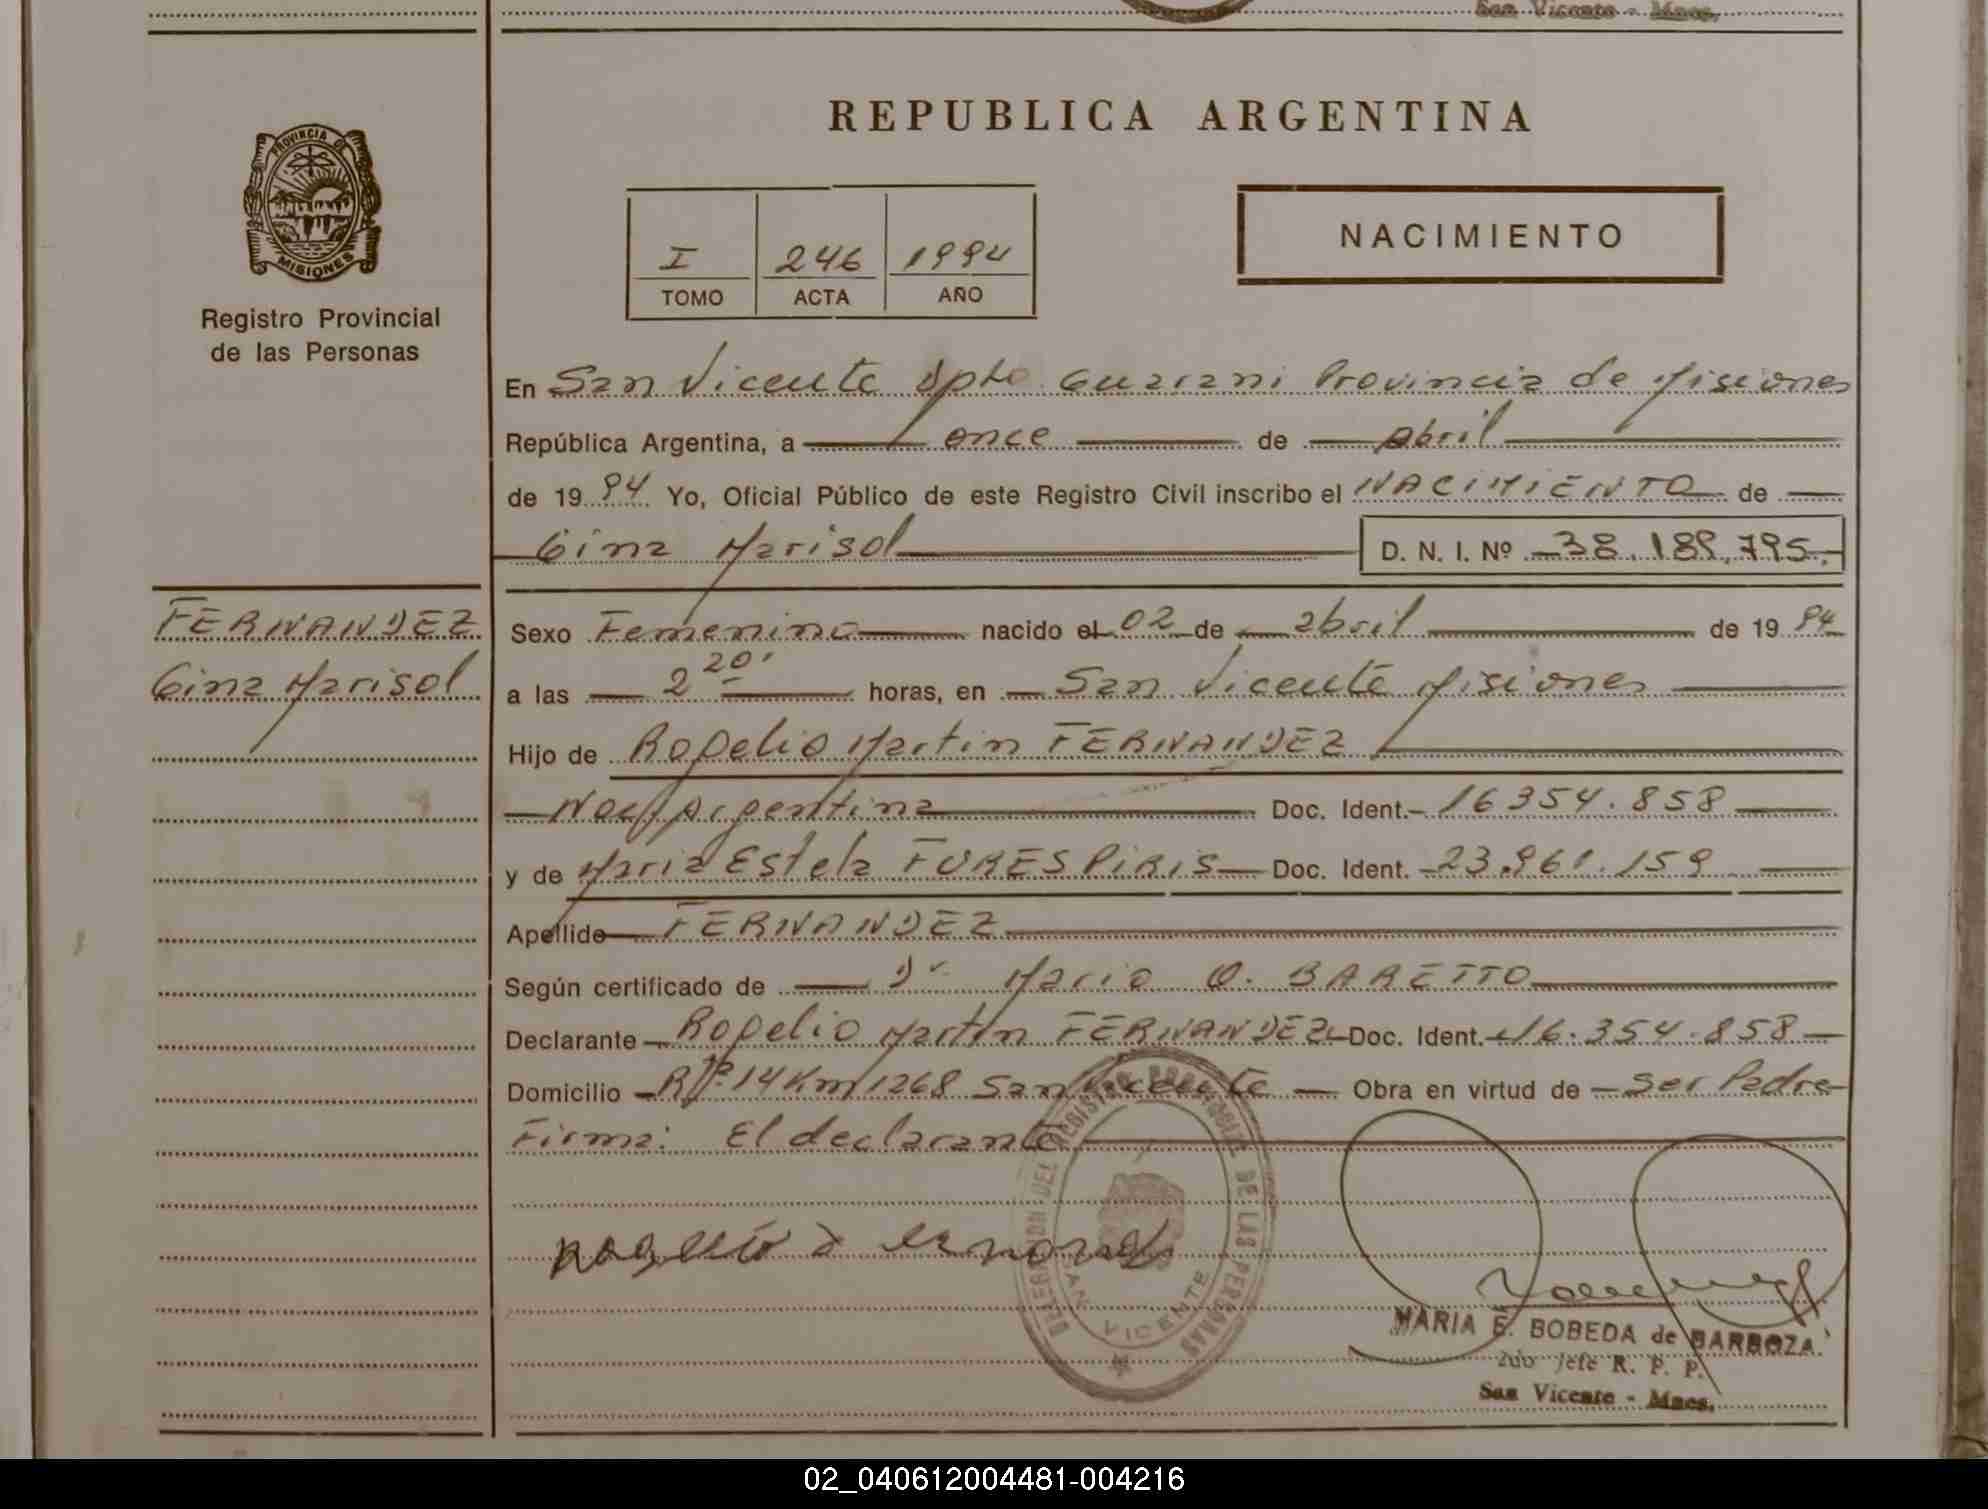 San Vicente - Mnes.
REPUBLICA ARGENTINA
PROVINCIA DE
MISIONES
Registro Provincial
de las Personas
I 246 1994
TOMO ACTA AÑO
NACIMIENTO
En San Vicente Dpto Guarani Provincia de Misiones
República Argentina, a once de abril
de 1994 Yo, Oficial Público de este Registro Civil inscribo el NACIMIENTO de
Gina Marisol D. N. I. Nº 38.189.795.
FERNANDEZ
Gina Marisol
Sexo Femenino nacido el 02 de abril de 1994
a las 2 20' horas, en San Vicente Misiones
Hijo de Rogelio Martin FERNANDEZ
Nac. Argentina Doc. Ident. 16354.858
y de Maria Estela FORES PIRIS Doc. Ident. 23.961.159
Apellido FERNANDEZ
Según certificado de Dr Mario O. BARETTO
Declarante Rogelio Martin FERNANDEZ Doc. Ident. 16.354.858
Domicilio R Nº 14 Km 1268 San Vicente Obra en virtud de ser Padre
Firma: El declarante
DELEGACION DEL REGISTRO PROVINCIAL DE LAS PERSONAS
SAN VICENTE
MARIA E. BOBEDA de BARBOZA
Jefe R. P. P.
San Vicente - Mnes.
02_040612004481-004216